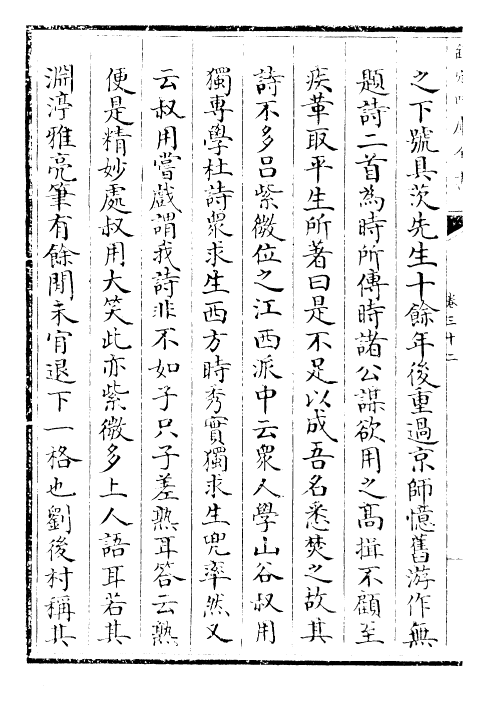 欽定四庫全書
卷三十二
之下號具茨先生十餘年後重過京師憶舊游作無
題詩二首為時所傳時諸公謀欲用之髙揖不顧至
疾革取平生所著曰是不足以成吾名悉焚之故其
詩不多吕紫微位之江西派中云衆人學山谷叔用
獨專學杜詩衆求生西方時秀實獨求生兜率然又
云叔用嘗戲謂我詩非不如子只子差熟耳答云熟
便是精妙處叔用大笑此亦紫微多上人語耳若其
淵渟雅亮筆有餘閒未肎退下一格也劉後村稱其